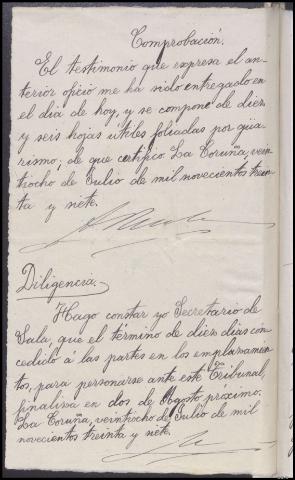 Comprobación.
El testimonio que expresa el an-
terior oficio me há sido entregado en
el dia de hoy, y se compone de diez
y seis hojas útiles foliadas por güa-
rismo; de que certifico La Coruña, vein-
tiocho de Julio de mil novecientos trein-
ta y siete.
Diligencia.
Hago constar yo Secretario de
Sala, que el término de diez dias con-
cedido á las partes en los emplazamien-
tos, para personarse ante este Tribunal,
finaliza en dos de Agosto próximo.
La Coruña, veintiocho de Julio de mil
novecientos treinta y siete.